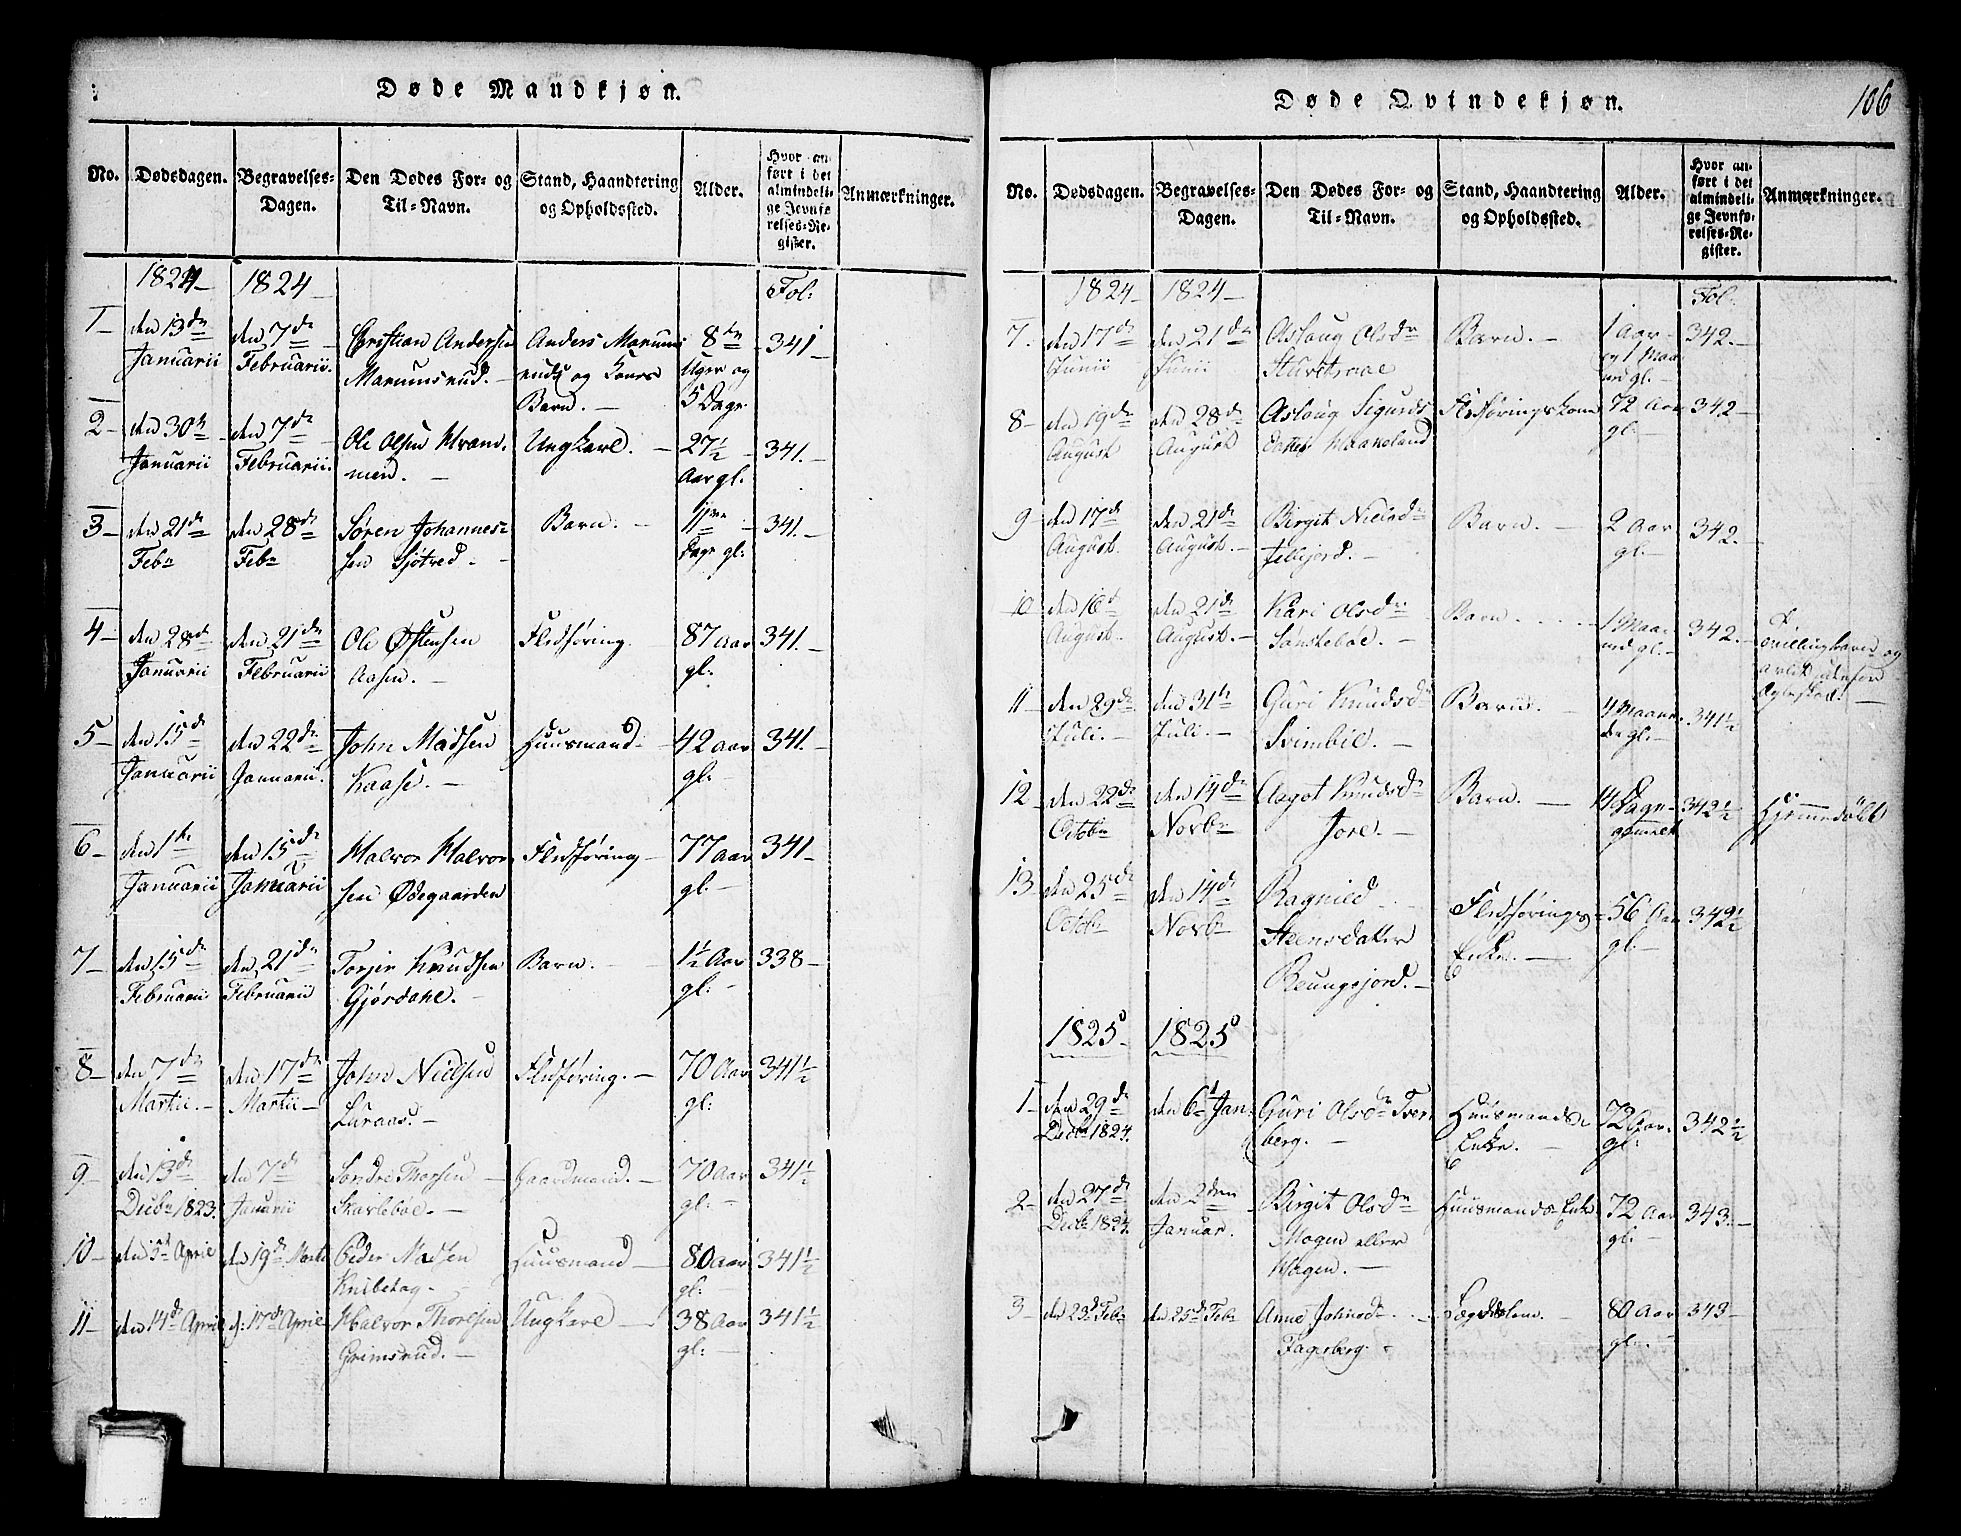 Døde Mandkjøn.
No. Dødsdagen. Begravelses-Dagen. Den Dødes For- og Til-Navn. Stand, Haandtering og Opholdssted. Alder. Hvor anført i det almindelige Jevnførelses-Register. Anmærkninger.
1824 1824 Fol:
1 den 13de Januarii den 7de Februarii. Christian Andersen Marumsrud. Anders Marumsruds og Kones Barn. 8te Uger og 5 Dage 341
2 den 30te Januarii den 7de Februarii. Ole Olsen Mrammen. Ungkarl. 27½ Aar gl. 341.
3 den 21de Febr den 28de Febr Søren Johannessen Sjøtved. Barn. 11ve Dage gl: 341.
4 den 28de Januarii den 21de Februarii Ole Østensen Aasen. Fledføring 87 Aar gl. 341.
5 den 15de Januarii den 22de Januarii. John Madsen Kaase. Huusmand. 42 Aar gl. 341.
6 den 1te Januarii den 15de Januarii Halvor Halvorsen Ødegaarden Fledføring 77 Aar gl. 341
7 den 15de Februarii den 21de Februarii Torjer Knudsen Gjørdahl. Barn. 1½ Aar gl: 338
8 den 7de Martii. den 17de Martii John Nielsen Luraas. Fledføring. 70 Aar gl: 341½
9 den 13de Decbr 1823. den 7de Januarii Søndre Thorsen Skarleboe. Gaardmand. 70 Aar gl: 341½
10 den 5te April den 19de Marti Peder Madsen Knibehag. Huusmand 80 Aar gl: 341½
11 den 14de April d: 17de April Halvor Thorsen Grimsrud. Ungkarl 38 Aar gl: 341½
Døde Qvindekjøn.
106
No. Dødsdagen. Begravelses-Dagen. Den Dødes For- og Til-Navn. Stand, Haandtering og Opholdssted. Alder. Hvor anført i det almindelige Jevnførelses-Register. Anmærkninger.
1824 1824 Fol:
7. den 17de Junii den 21de Junii Aslaug Olsdr Barn. 1 Aar og 1 Maaned gl. 342.
8 den 19de August den 28de August Aslaug Sigurdsdatter Haakeland Fledføringskone 72 Aar gl: 342
9 den 17de August. den 21de August. Birgit Nielsdr Barn. 2 Aar gl. 342.
10 den 16de August. den 21de August. Kari Olsdr Barn. 1 Maaned gl. 342.
11 den 29de Juli. den 31te Juli. Guri Knudsdr Svimbil. Barn. 4 Maaneder gl. 341½
12 den 22de Octobr den 14de Novbr Aagot Knudsdr Jore. Barn. 14 Dage gammel 342½ Hjemmedøbt
13 den 25de Octobr den 14de Novbr Ragnild Steensdatter Reungsjord. Fledførings-Enke. 56 Aar gl. 342½
1825 1825
1 den 29de Decbr 1824. den 6te Jan: Guri Olsdr Tverberg. Huusmands Enke. 72 Aar gl: 342½
2 den 27de Decbr 1824. den 2den Januar. Birgit Olsdr Mogen eller Hagen. Huusmands Enke. 72 Aar gl: 343.
3 den 23de Febr den 25de Febr Anne Johnsdr Fagerberg. Lægdslem. 80 Aar gl. 343